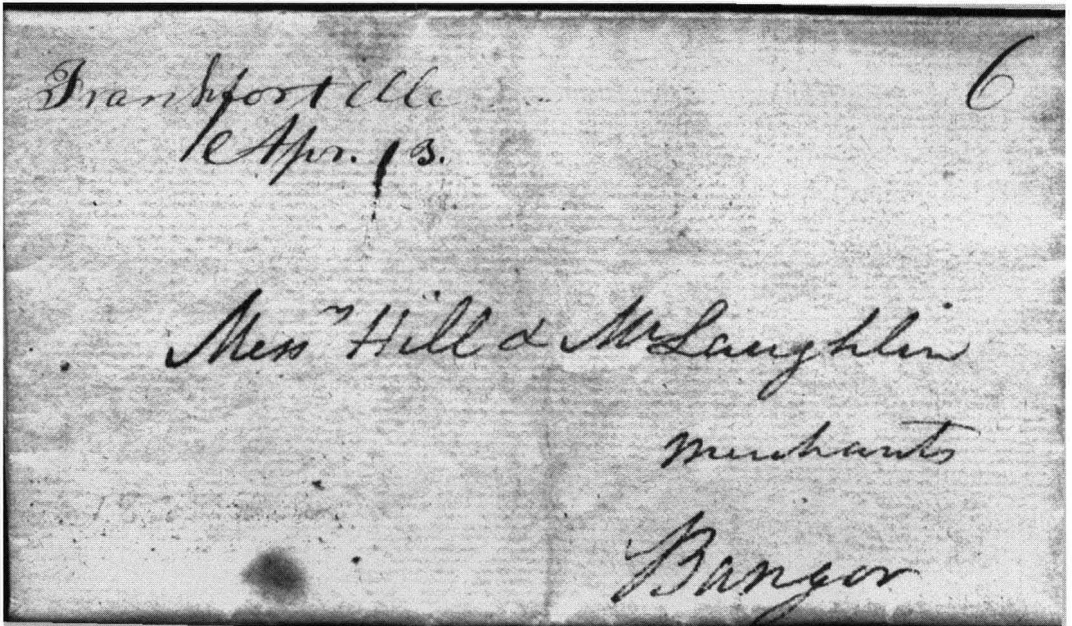 Frankfort Me
6
Apr. 13.
Messrs Hill & McLaughlin
merchants
Bangor